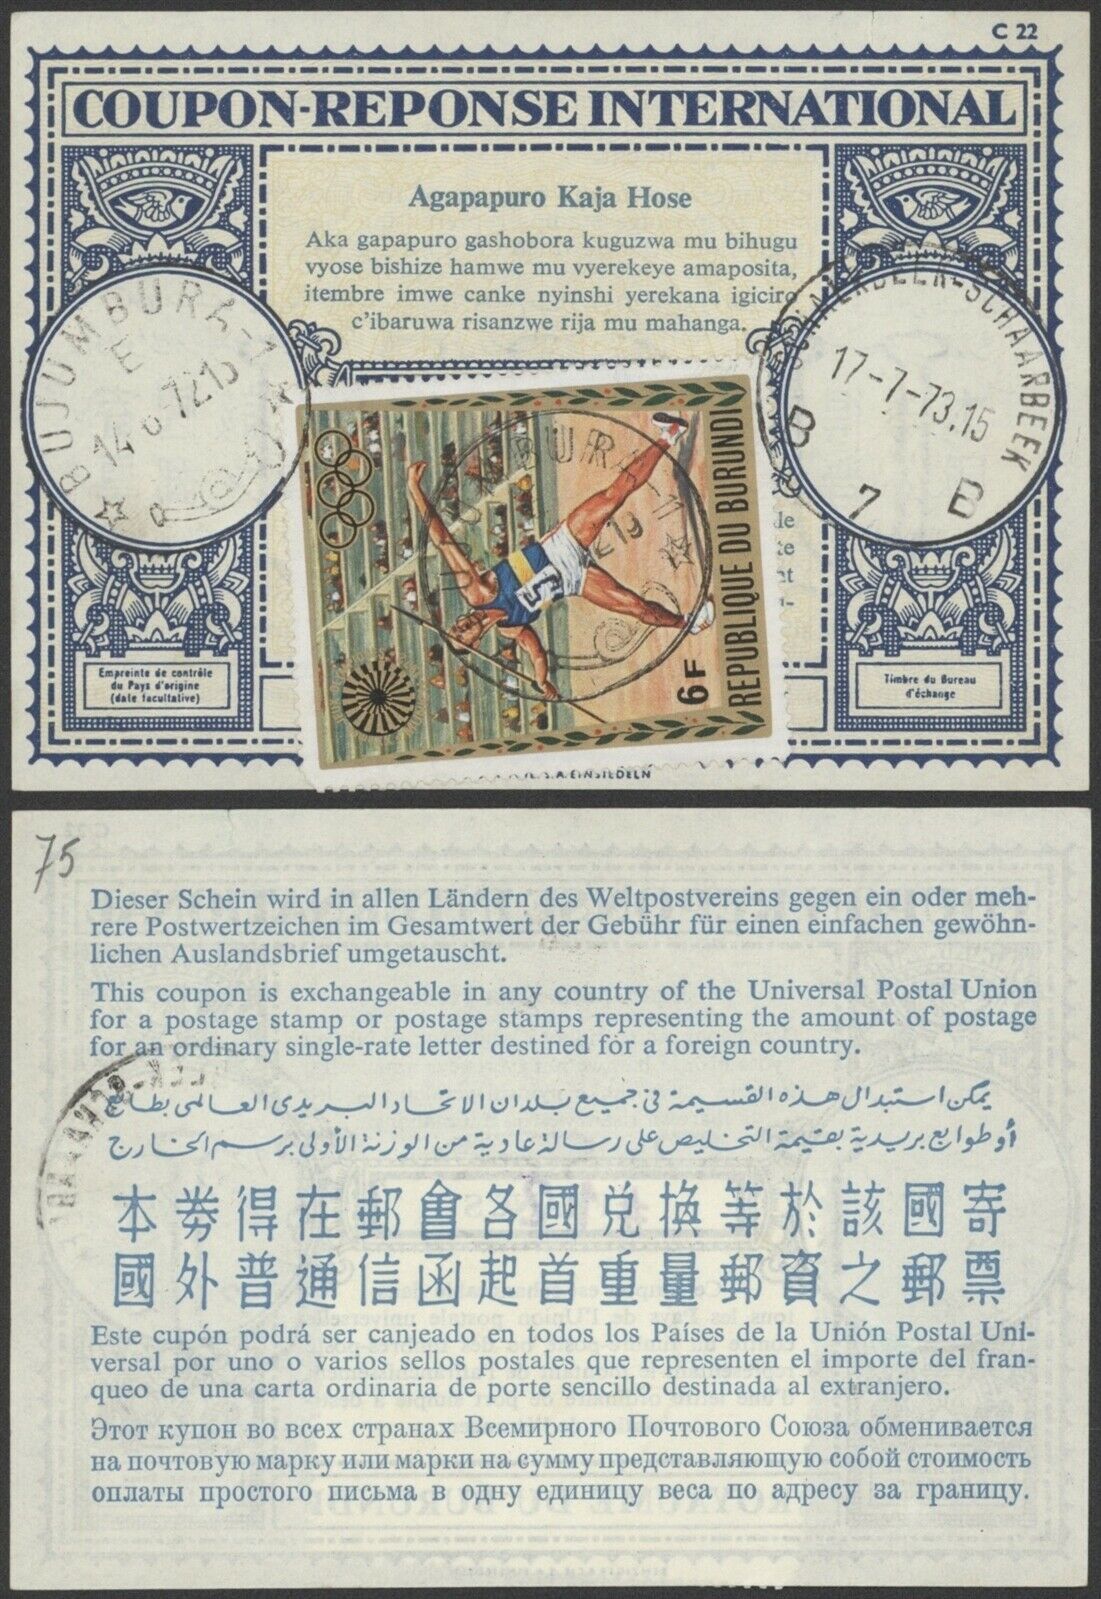 C 22
COUPON-REPONSE INTERNATIONAL
Agapapuro Kaja Hose
Aka gapapuro gashobora kuguzwa mu bihugu
vyose bishize hamwe mu vyerekeye amaposita,
itembre imwe canke nyinshi yerekana igiciro
c'ibaruwa risanzwe rija mu mahanga.
BUJUMBURA-1
E
SCHAERBEEK-SCHAARBEEK
17-7-73.15
B 7 B
REPUBLIQUE DU BURUNDI
6F
Empreinte de contrôle
du Pays d'origine
(date facultative)
Timbre du Bureau
d'échange
S.A. EINSIEDELN
75
Dieser Schein wird in allen Ländern des Weltpostvereins gegen ein oder meh-
rere Postwertzeichen im Gesamtwert der Gebühr für einen einfachen gewöhn-
lichen Auslandsbrief umgetauscht.
This coupon is exchangeable in any country of the Universal Postal Union
for a postage stamp or postage stamps representing the amount of postage
for an ordinary single-rate letter destined for a foreign country.
يمكن استبدال هذه القسيمة في جميع بلدان الاتحاد البريدى العالمى بطابع
أو طوابع بريدية بقيمة التخليص على رسالة عادية من الوزنة الأولى برسم الخارج
本券得在郵會各國兑換等於該國寄
國外普通信函起首重量郵資之郵票
Este cupón podrá ser canjeado en todos los Países de la Unión Postal Uni-
versal por uno o varios sellos postales que representen el importe del fran-
queo de una carta ordinaria de porte sencillo destinada al extranjero.
Этот купон во всех странах Всемирного Почтового Союза обменивается
на почтовую марку или марки на сумму представляющую собой стоимость
оплаты простого письма в одну единицу веса по адресу за границу.